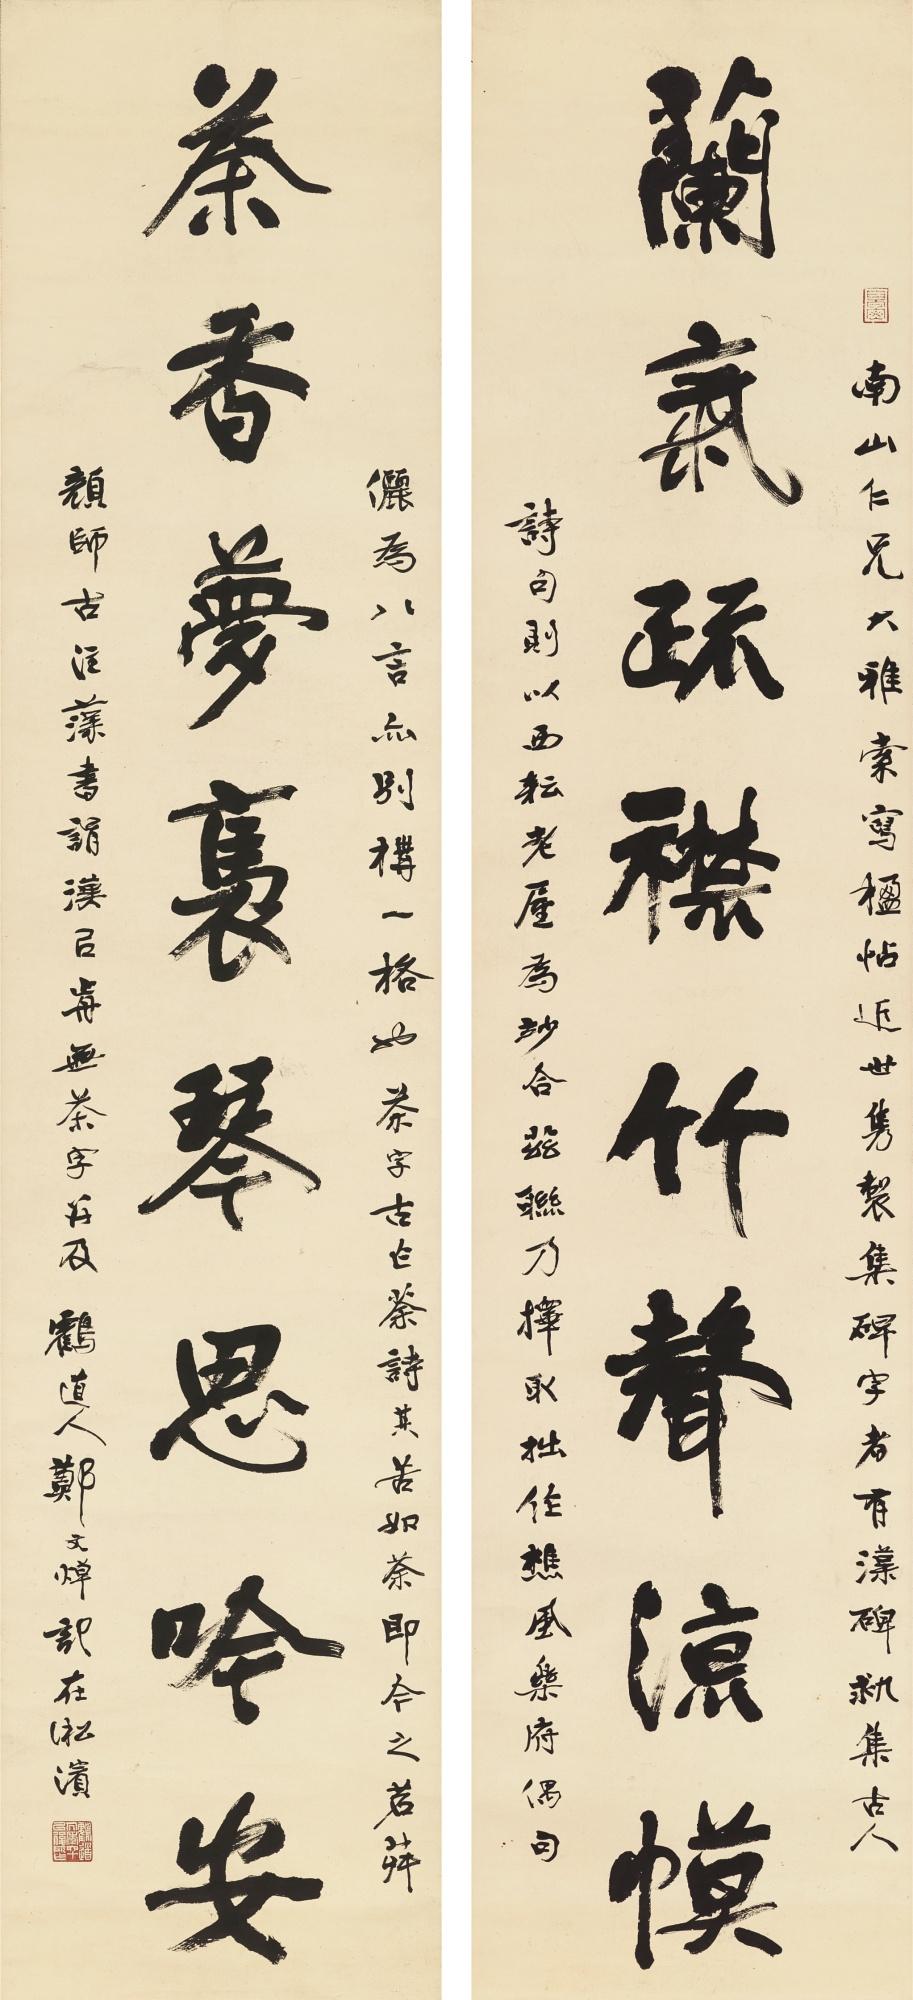 南山仁兄大雅索寫楹帖近世雋製集碑字者有漢碑
蘭氣疏襟竹聲涼幙
詩句則以西耘老屋為妙合茲聯乃擇取拙作樵風樂府偶句
儷為八言亦別構一格也茶字古作荼詩其苦如荼即今之茗荈
荼香夢裏琴思吟安
顏師古注漢書謂漢已前無茶字并及 鶴道人鄭文焯記在淞濱